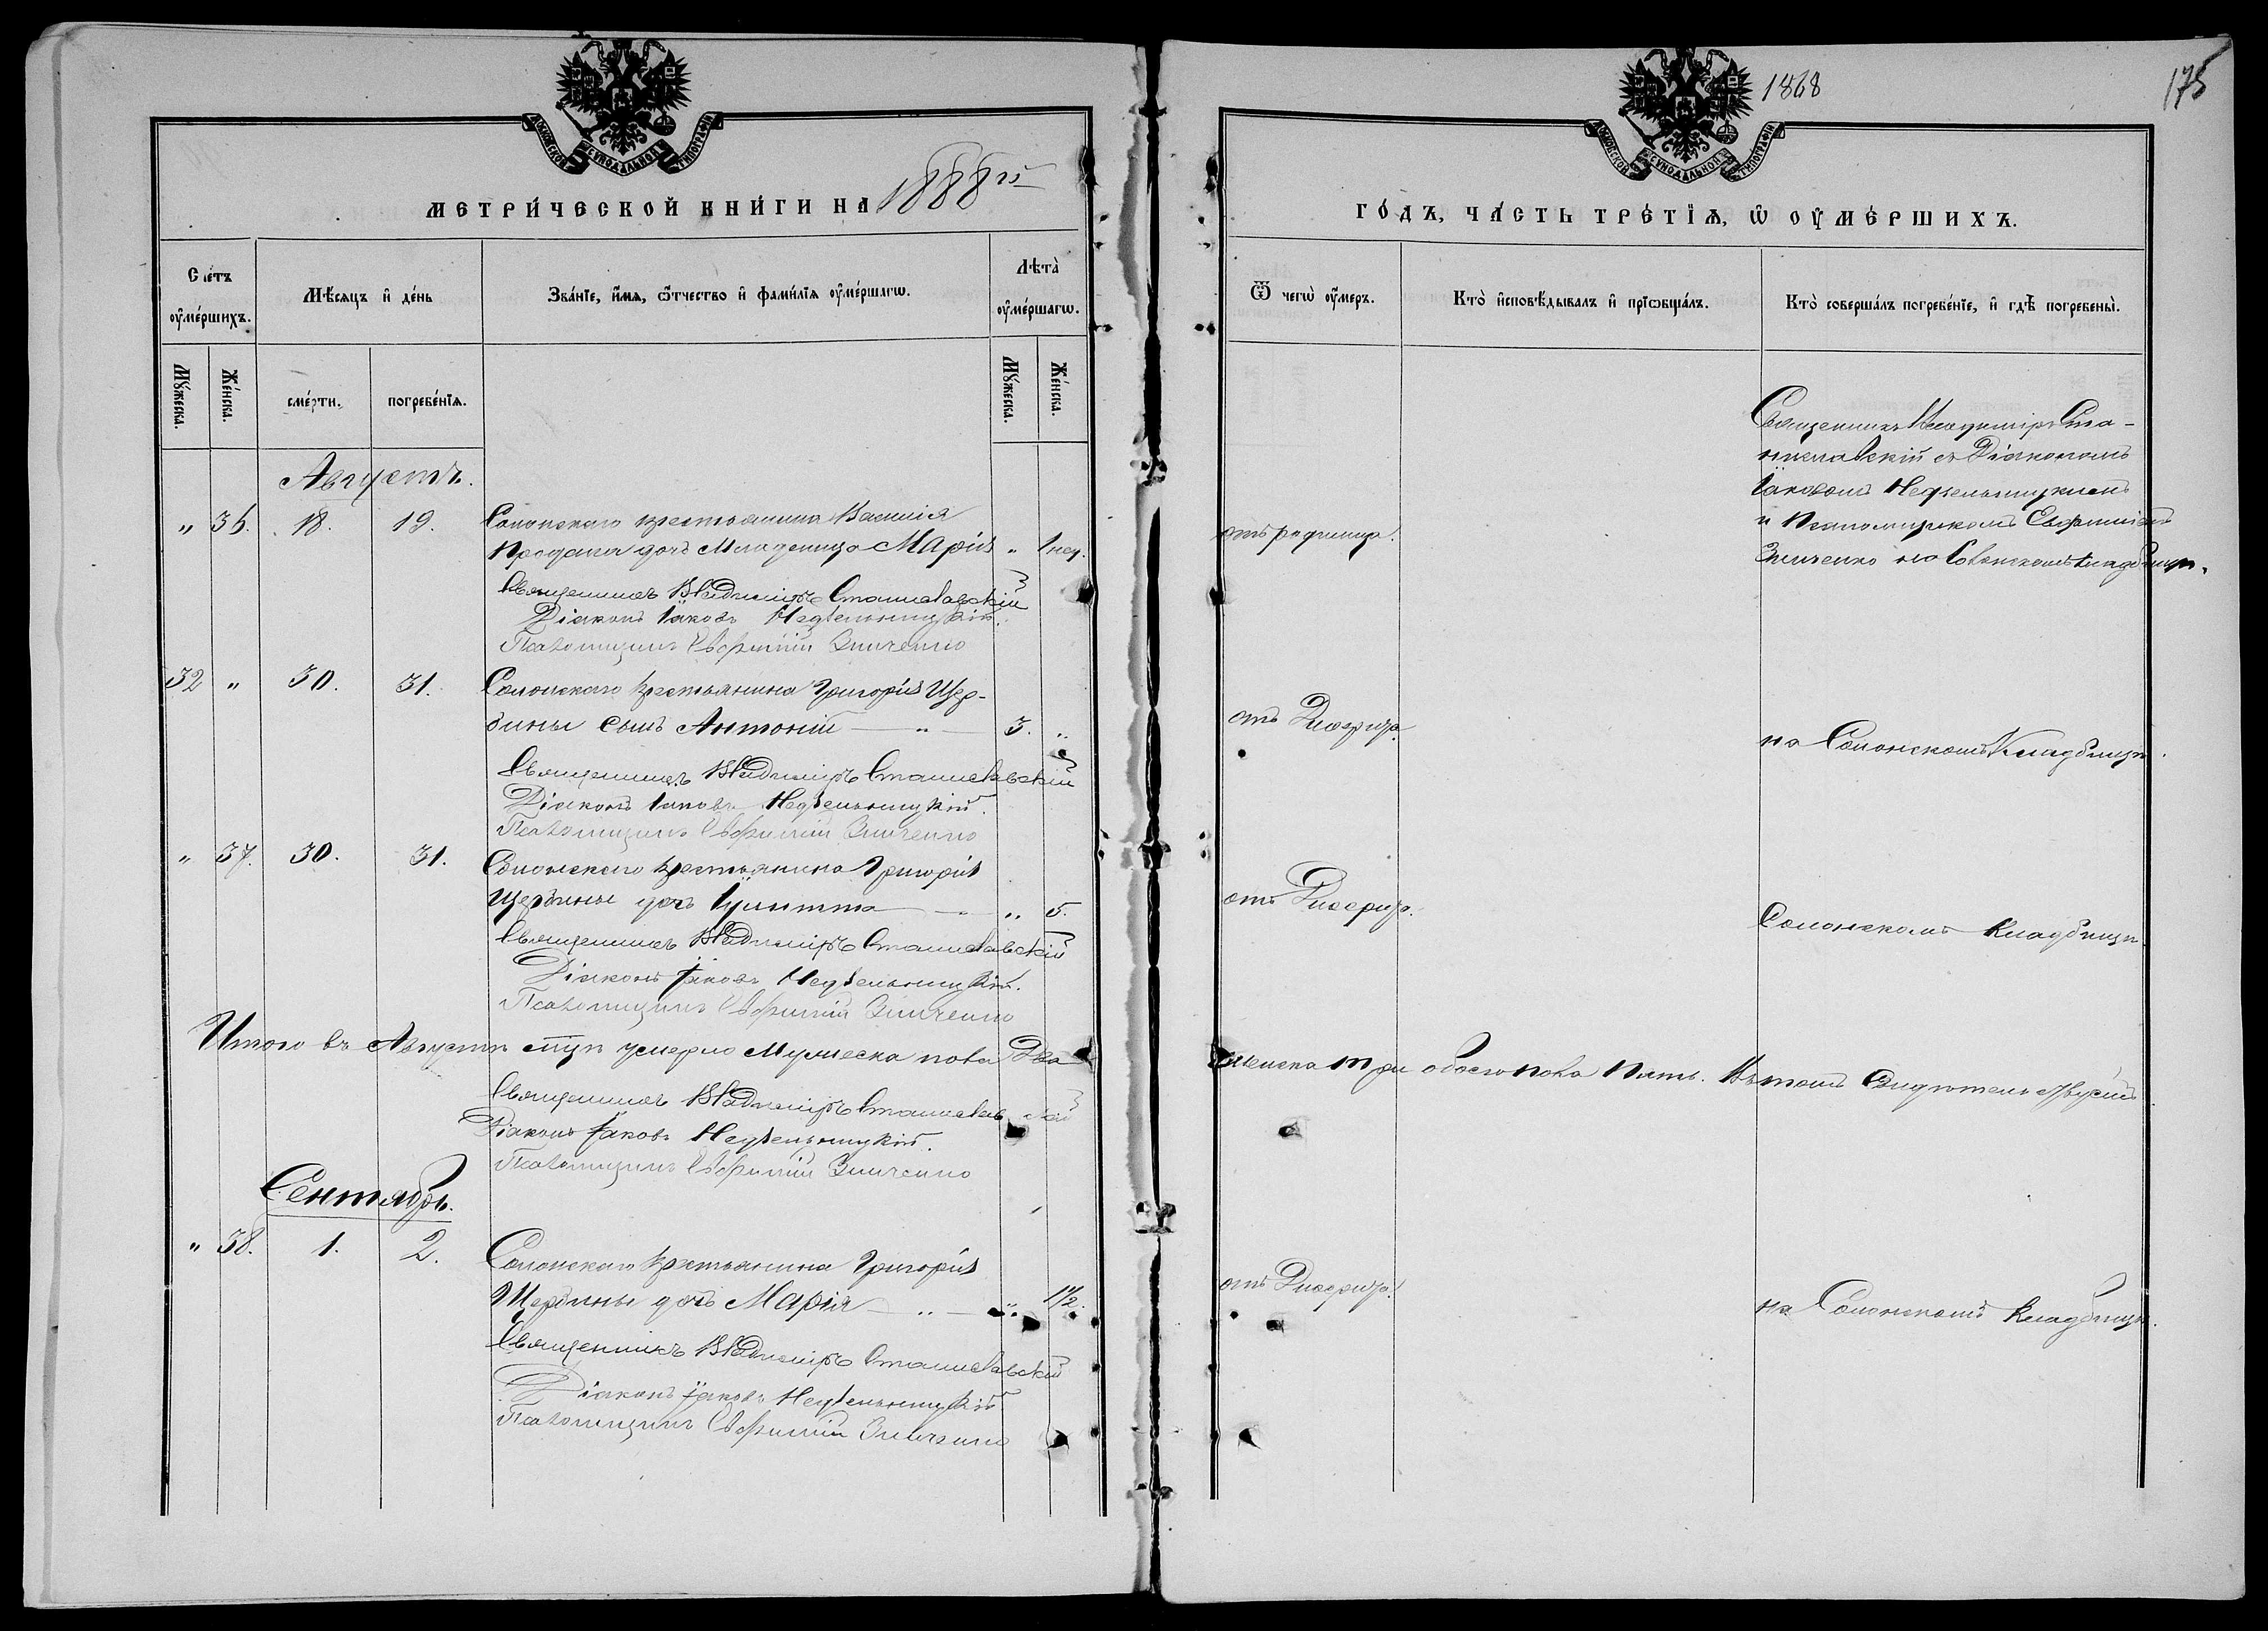 МОСКОВСКОЙ СУНОДАЛЬНОЙ ТИПОГРАФІИ
МЕТРИ́ЧЕСКОЙ КНИ́ГИ НА 1888й
Сче́тъ оу҆ме́ршихъ.
Мѣ́сяцъ и҆ де́нь
Зва́нїе, и҆́мѧ, ѻ҆́тчество и҆ фами́лїѧ оу҆ме́ршагѡ.
Лѣта̀ оу҆ме́ршагѡ.
Мꙋ́жеска.
Же́нска.
сме́рти.
погребе́нїѧ.
Мꙋ́жеска.
Же́нска.
Августъ.
„ 36. 18. 19. Солонскаго крестьянина Василія
дочь Младеница Марія „ 1 нед.
Священникъ Владиміръ Станиславскій
Діаконъ Іаковъ Недѣльницкій.
Псаломщикъ Евфимій Зинченко
32 „ 30. 31. Солонскаго крестьянина Григорія Щер-
бины сынъ Антоній — „ — 3. „
Священникъ Владиміръ Станиславскій
Діаконъ Іаковъ Недѣльницкій.
Псаломщикъ Евфимій Зинченко
„ 37. 30. 31. Солонскаго крестьянина Григорія
Щербины дочь — „ „ 5.
Священникъ Владиміръ Станиславскій
Діаконъ Іаковъ Недѣльницкій.
Псаломщикъ Евфимій Зинченко
Итого въ Августѣ умерло Мужеска пола Два
Священникъ Владиміръ Станиславскій
Діаконъ Іаковъ Недѣльницкій.
Псаломщикъ Евфимій Зинченко
Сентябрь.
„ 38. 1. 2. Солонскаго крестьянина Григорія
Щербины дочь Марія — „ — „ 1½.
Священникъ Владиміръ Станиславскій
Діаконъ Іаковъ Недѣльницкій
Псаломщикъ Евфимій Зинченко
1868
175
МОСКОВСКОЙ СУНОДАЛЬНОЙ ТИПОГРАФІИ
ГО́ДЪ, ЧА́СТЬ ТРЕ́ТЇѦ, Ѡ҆ ОУ҆МЕ́РШИХЪ.
Ѿ чегѡ̀ оу҆́меръ.
Кто̀ и҆сповѣ́дывалъ и҆ прїѡбща́лъ.
Кто̀ соверша́лъ погребе́нїе, и҆ гдѣ̀ погребены̀.
Священникъ Владиміръ Ста-
ниславскій съ Діакономъ
Іаковомъ Недѣльницкимъ
и Псаломщикомъ Евфиміемъ
отъ родимца.
Зинченко на Солонскомъ кладбищѣ.
отъ Дифтерита.
на Солонскомъ Кладбищѣ.
отъ Дифтерита.
Солонскомъ Кладбищѣ.
женска три обоего пола Пять. Въ томъ
отъ Дифтерита.
на Солонскомъ Кладбищѣ.